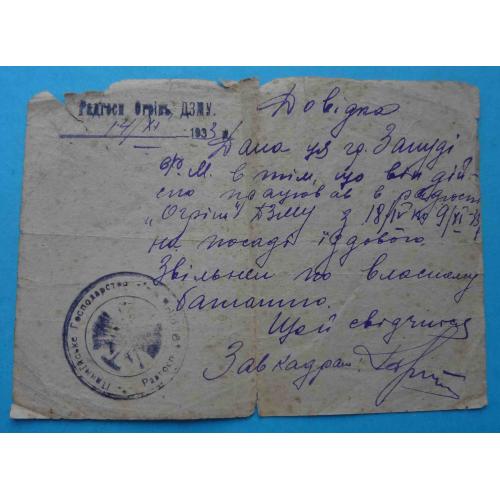 Радгосп Огрінь ДЗМУ.
14/XI 1933 р
Довідка
Дана ця гр. Запуді
Ф. М. в тім, що він дій-
сно працював в радгоспі
"Огрінь" ДЗМУ з 18/IV по 9/XI-33
на посаді їздового.
Звільнен по власному
бажанню.
Що й свідчится
Зав кадрам
Господарство
Радгосп